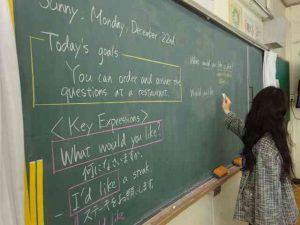 Sunny, Monday, December 22nd
Today's goals
You can order and answer the
questions at a restaurant.
<Key Expressions>
What would you like?
何になさいますか。
- I'd like a steak.
ステーキをお願いします。
What would you like
Would you like